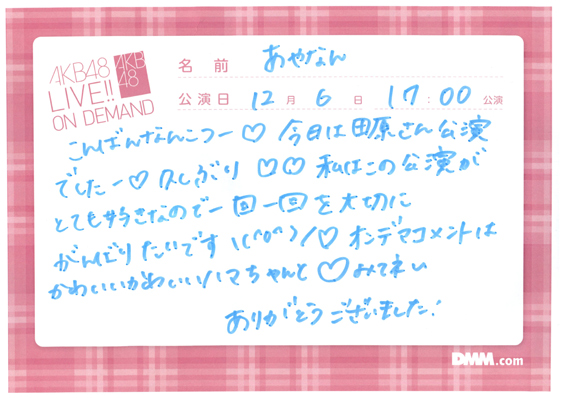 AKB48
LIVE!!
ON DEMAND
AKB
48
名前 あやなん
公演日 12月6日 17:00公演
こんばんなんこつー♡ 今日は田原さん公演
でしたー♡ 久しぶり ♡♡ 私はこの公演が
とても好きなので一回一回を大切に
がんばりたいです \(^o^)/♡ オンデマコメントは
かわいいかわいいハマちゃんと♡みてネい
ありがとうございました!
DMM.com